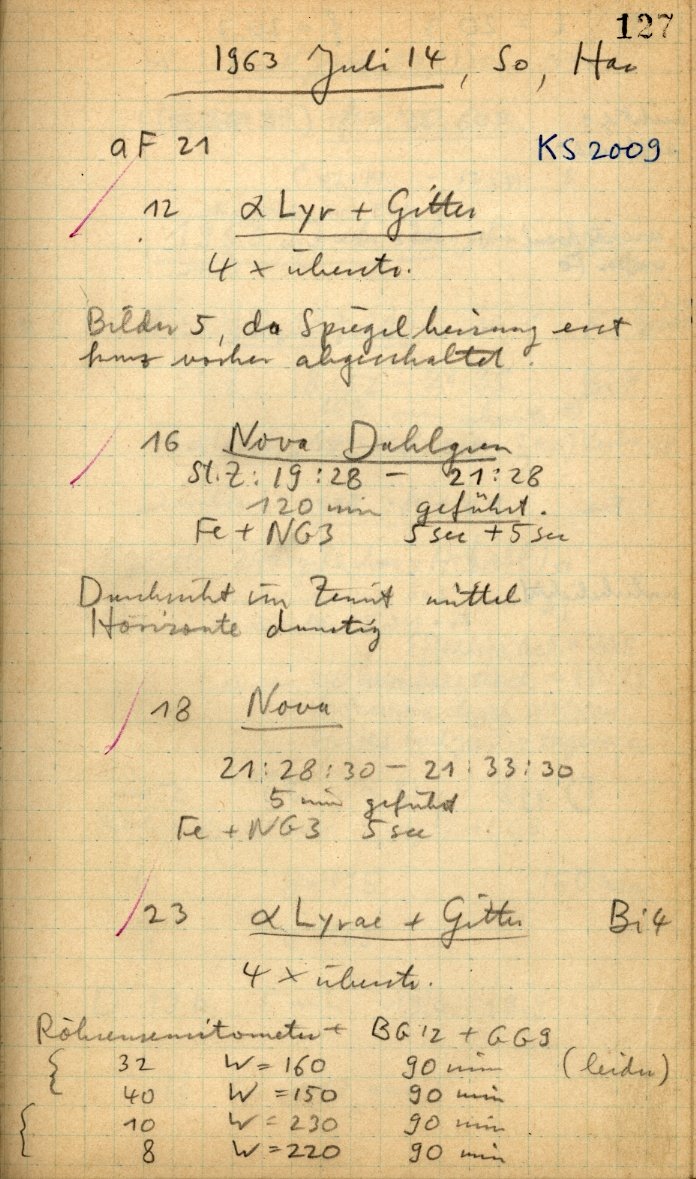 127
1963 Juli 14, So, Hau
aF 21 KS 2009
12 α Lyr + Gitter
4 × überstr.
Bilder 5, da Spiegelheizung erst
kurz vorher abgeschaltet.
16 Nova Dahlgren
St.Z: 19:28 – 21:28
120 min geführt.
Fe + NG3 5 sec + 5 sec
Durchsicht im Zenit mittel
Horizonte dunstig
18 Nova
21:28:30 – 21:33:30
5 min geführt
Fe + NG3 5 sec
23 α Lyrae + Gitter Bi 4
4 × überstr.
Röhrensensitometer + BG12 + GG9
32 W = 160 90 min (leider)
40 W = 150 90 min
10 W = 230 90 min
8 W = 220 90 min